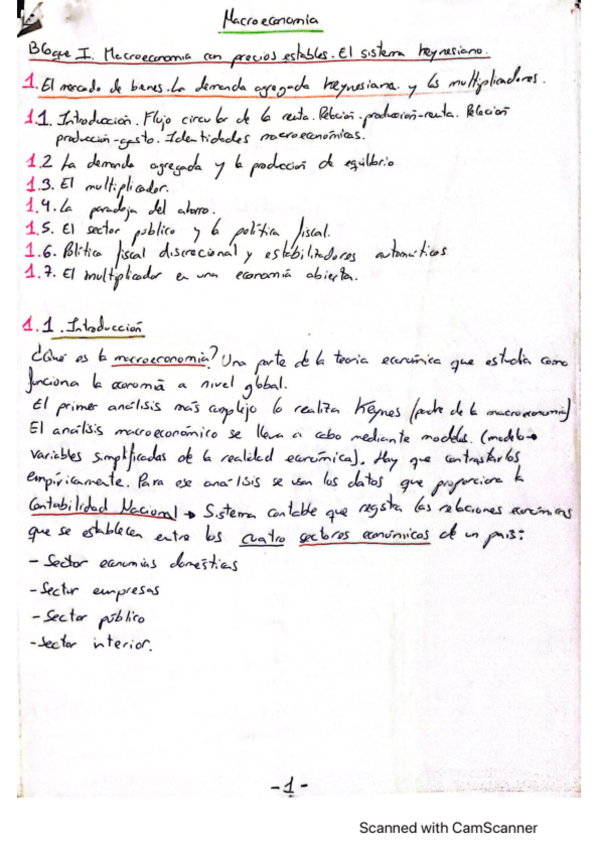 Macroeconomía
Bloque I. Macroeconomía con precios estables. El sistema keynesiano.
1. El mercado de bienes. La demanda agregada keynesiana y los multiplicadores.
1.1. Introducción. Flujo circular de la renta. Relación producción-renta. Relación
producción-gasto. Identidades macroeconómicas.
1.2 La demanda agregada y la producción de equilibrio
1.3. El multiplicador.
1.4. La paradoja del ahorro.
1.5. El sector público y la política fiscal.
1.6. Política fiscal discrecional y estabilizadores automáticos
1.7. El multiplicador en una economía abierta.
1.1. Introducción
¿Qué es la macroeconomía? Una parte de la teoría económica que estudia como
funciona la economía a nivel global.
El primer análisis más complejo lo realiza Keynes (padre de la macroeconomía)
El análisis macroeconómico se lleva a cabo mediante modelos. (modelo→
variables simplificadas de la realidad económica). Hay que contrastarlos
empíricamente. Para ese análisis se usan los datos que proporciona la
Contabilidad Nacional → Sistema contable que registra las relaciones económicas
que se establecen entre los cuatro sectores económicos de un país:
- Sector economías domésticas
- Sector empresas
- Sector público
- Sector interior.
- 1 -
Scanned with CamScanner